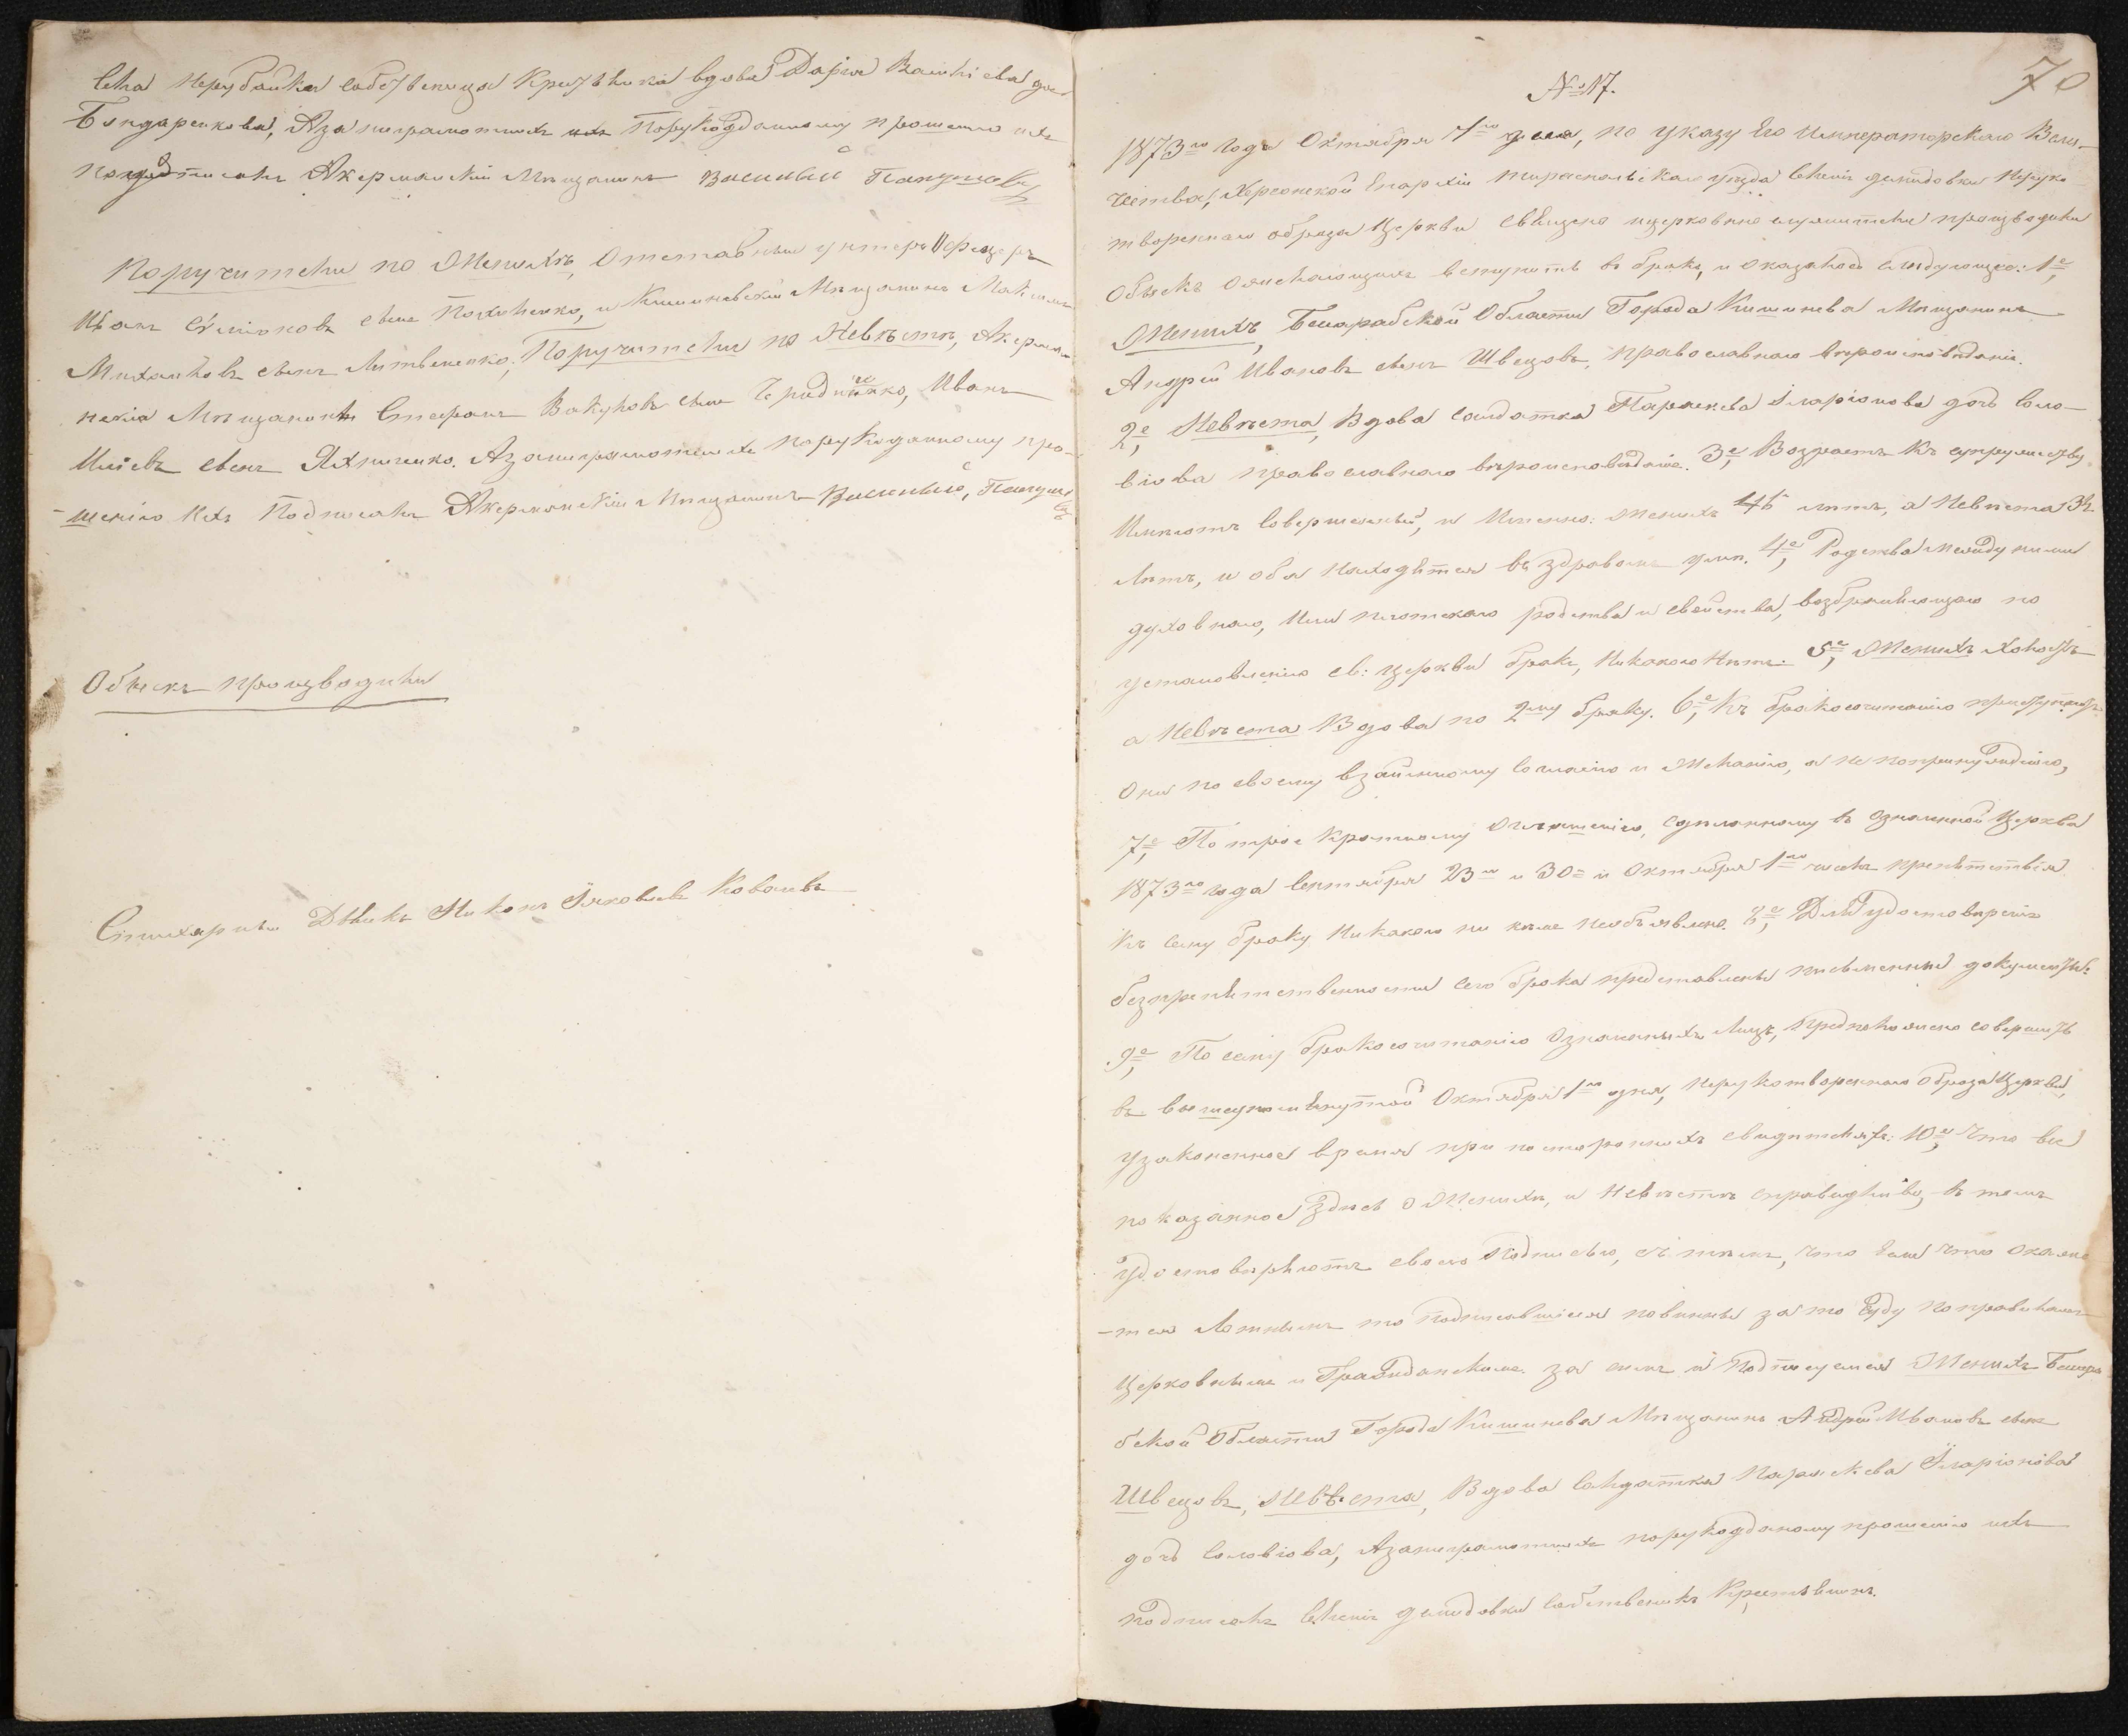 села Нерубайки собственица Крестьянка вдова Дарія Василіева доч
Бондаренкова, А за неграмотныхъ ихъ порукоданному прошенію ихъ
подписалъ Акерманскій Мещанинъ Василий
Поручители по Женихѣ, Отставный унтеръ Офицеръ
Иванъ сынъ и Кишиневскій Мѣщанинъ Максимъ
Михайловъ сынъ Литвиненко; Поручители по Невѣстѣ, Акерман
нскіи Мѣщанинъ Стефанъ Вакуловъ сынъ Иванъ
Иліевъ сынъ А за неграмотныхъ порукоданному про-
-шенію ихъ Подписалъ Акерманскій Мѣщанинъ Василий
Обыскъ производили
Стихарный Дьякъ Никонъ Яковлевъ
70
№ 17.
1873го года Октября 1го дня, по указу Его Императорскаго Вели-
чества, Херсонской Епархіи Тираспольскаго уезда Селенія демидовки Неруко
твореннаго образа Церкви священо ицерковно служители производили
Обыскъ ожелающихъ вступить въ бракъ, и оказалось слѣдующее: 1е,
Женихъ, Бесарабской Области Города Кишинева Мѣщанинъ
Андрей Ивановъ сынъ Швецовъ, православнаго вѣроисповѣданія.
2е, Невѣста, Вдова солдатка Параскева Іларіонова дочь Соло-
віова православнаго вѣроисповѣданія. 3е, Возрастъ къ супружеству
Имѣютъ Совершенный, и Именно: женихъ 46 лѣтъ, а Невѣста 32
Лѣтъ, и оба находятся въ здравомъ умѣ. 4е, Родства между ними
духовнаго, Или плотскаго родства и свойства, возбраняющаго по
установленію св: церкви бракъ, никакого Нѣтъ. 5е, Женихъ холостъ
а Невѣста Вдова по 2му браку. 6е, Къ бракосочитанію приступаютъ
Они по своему взаимному согласію и Желанію, а не попринужденію,
7е, По трое кратному оглашенію, сдѣланному въ означенной Церкви
1873го года Сентября 23го и 30 и Октября 1го числа препятствія
къ сему браку Никакого ни кѣмъ необъявлено. 8е, Для удостовѣренія
безпрепятственности сего брака представлены письменныя документы.
9е, По сему бракосочитанію Означеныхъ Лицъ, предположено совершить
въ вышеупомянутой Октября 1го дня, Нерукотвореннаго образа Церкви,
узаконенное время при постороннихъ свидѣтеляхъ: 10е, Что все
показанное здѣсь о Женихѣ, и Невѣстѣ справидливо, въ томъ
удостовѣряютъ своею Подписью, съ тѣмъ, что Если что окаже
-тся Ложнымъ то подписавшіеся повинны за то Суду поправиламъ
Церковнымъ и Гражданскимъ. за симъ и Подписуемся Женихъ Бессара
бской Области Города Кишинева Мѣщанинъ Андрей Ивановъ сынъ
Швецовъ, Невѣста, Вдова Солдатка Параскева Іларіонова
дочъ Соловіова, А занеграмотныхъ порукоданому прошенію ихъ
подписалъ Селенія демидовки Собственикъ Крестьянинъ.